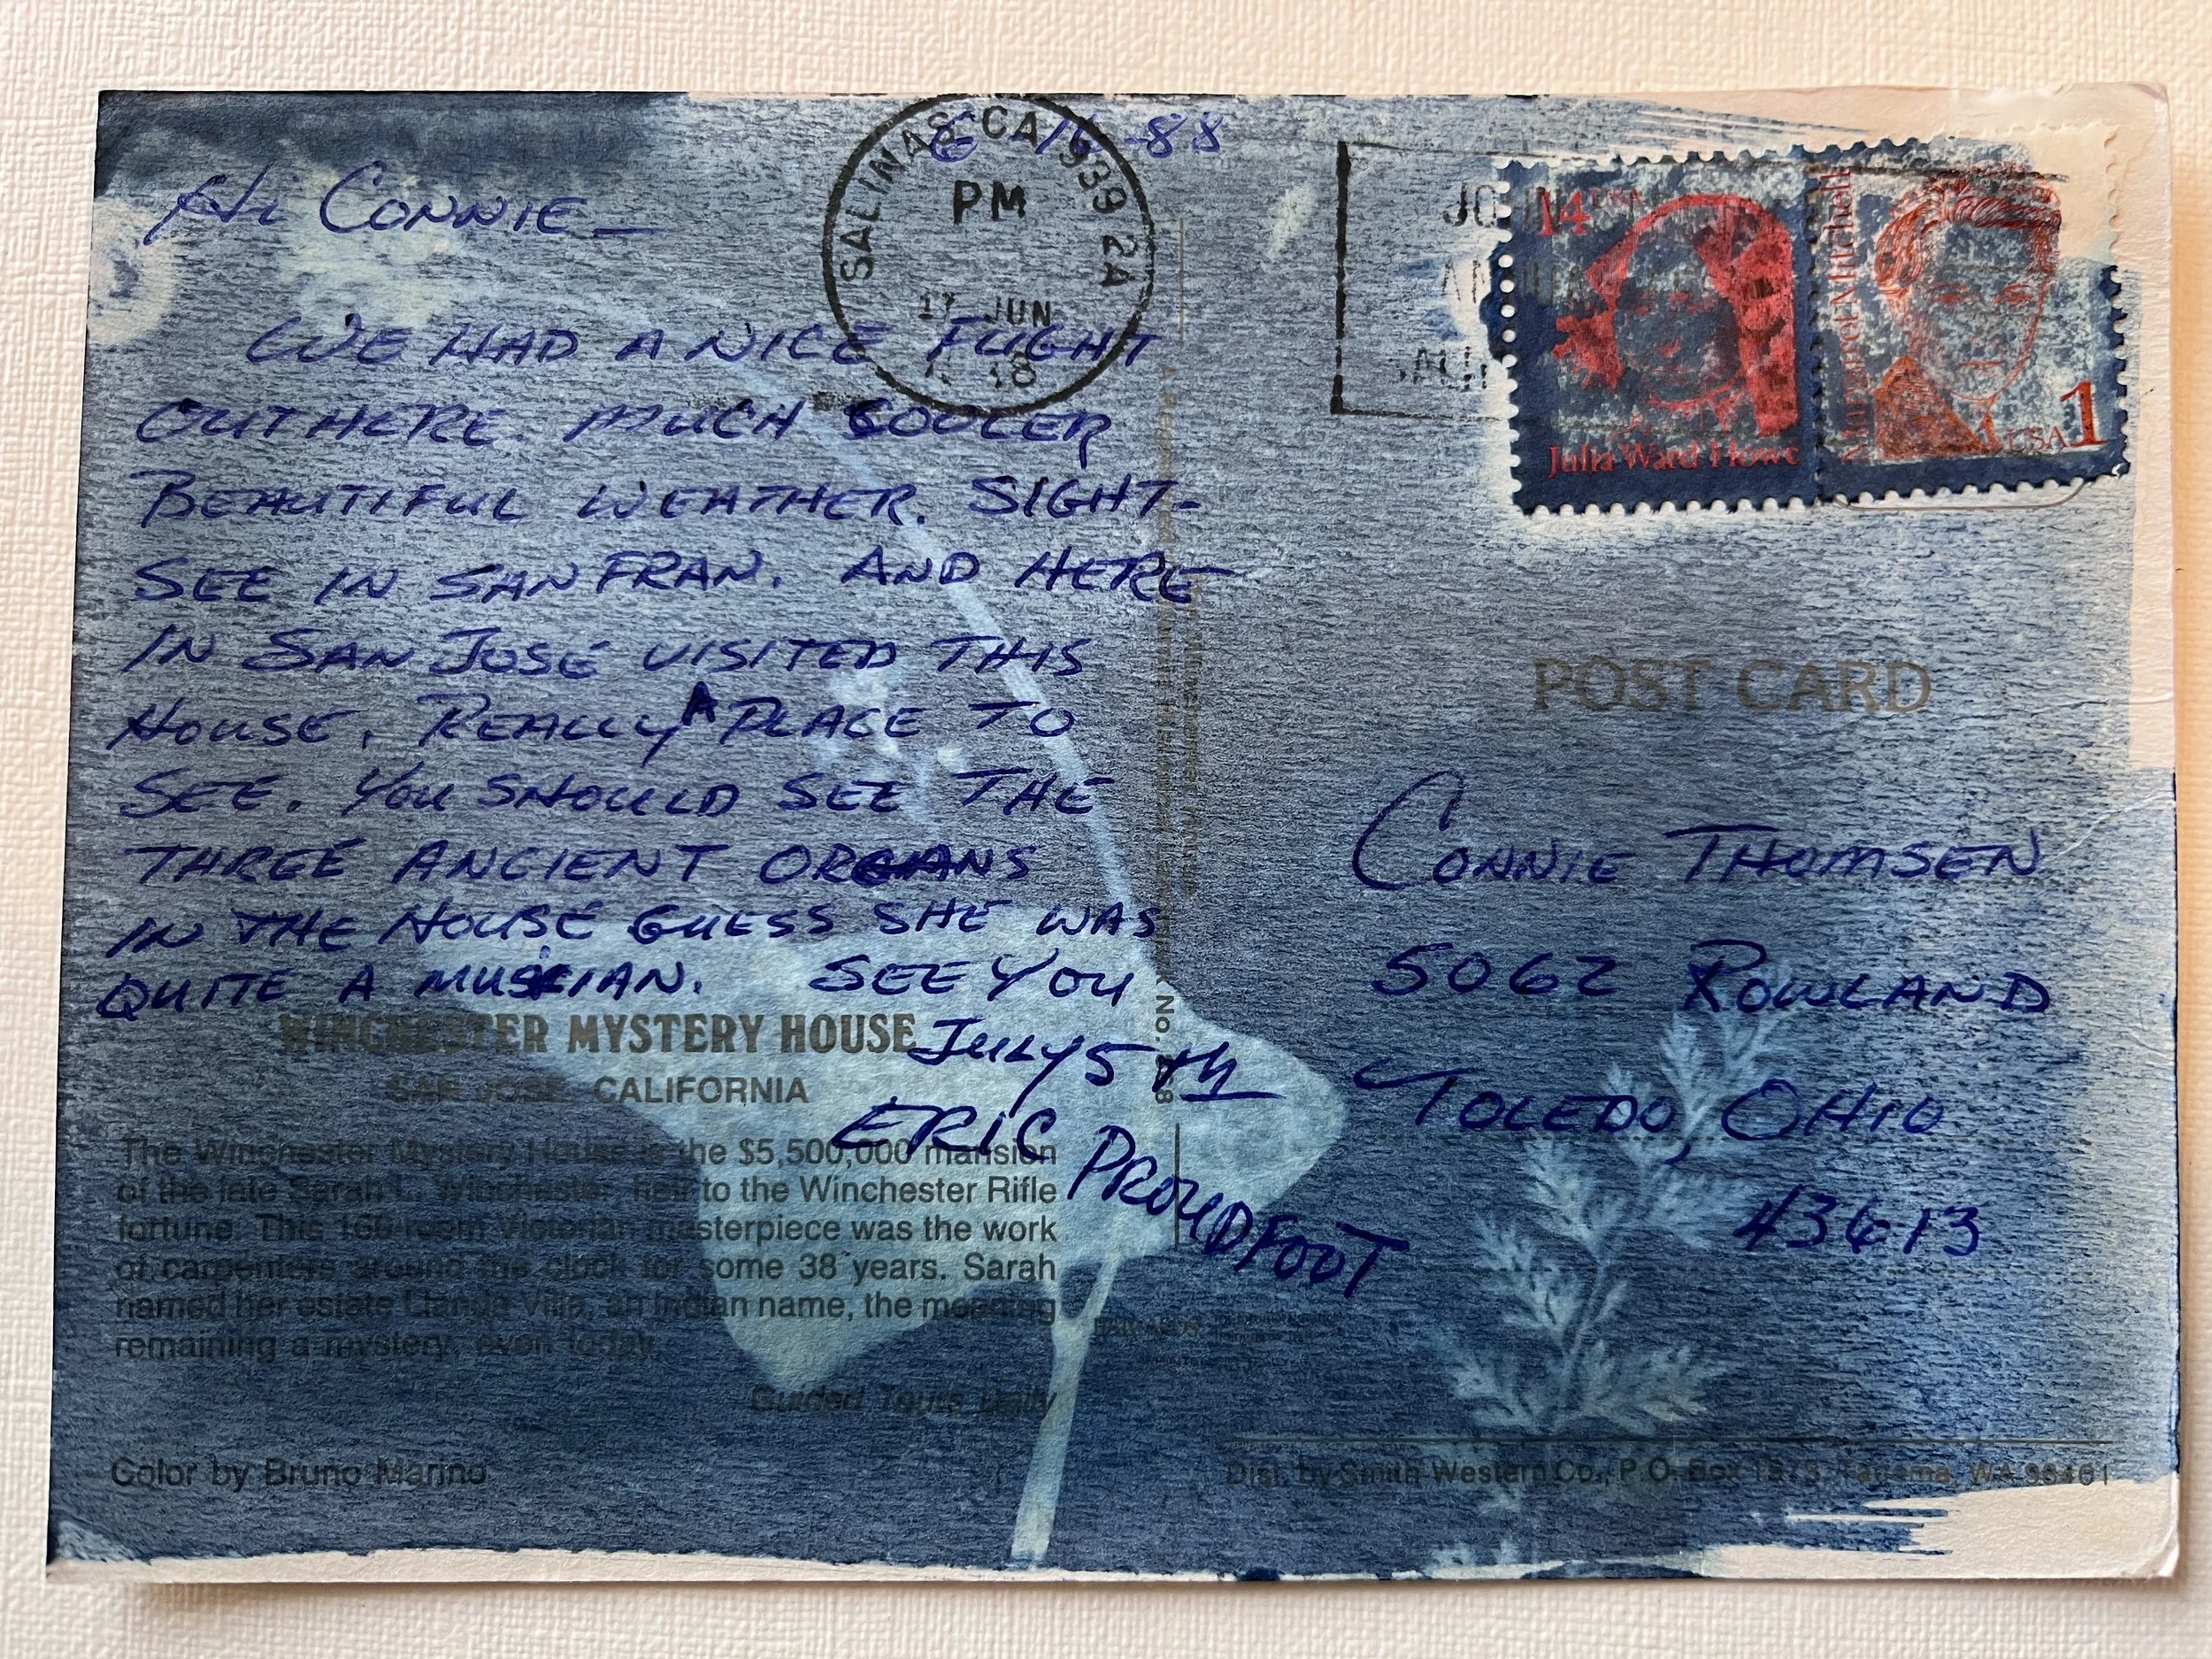 6-16-88
Hi CONNIE_
WE HAD A NICE FLIGHT
OUT HERE. MUCH COOLER
BEAUTIFUL WEATHER. SIGHT-
SEE IN SAN FRAN. AND HERE
IN SAN JOSE VISITED THIS
HOUSE. REALLY A PLACE TO
SEE. YOU SHOULD SEE THE
THREE ANCIENT ORGANS
IN THE HOUSE GUESS SHE WAS
QUITE A MUSICIAN. SEE YOU
JULY 5th
ERIC PROUDFOOT
WINCHESTER MYSTERY HOUSE
SAN JOSE, CALIFORNIA
The Winchester Mystery House is the $5,500,000 mansion
of the late Sarah L. Winchester, heir to the Winchester Rifle
fortune. This 160-room Victorian masterpiece was the work
of carpenters around the clock for some 38 years. Sarah
named her estate Llanda Villa, an Indian name, the meaning
remaining a mystery, even today.
Guided Tours Daily
Color by Bruno Marino
SALINAS CA 939 2A
PM
17 JUN
14 USA
Julia Ward Howe
Margaret Mitchell
USA 1
POST CARD
CONNIE THOMSEN
5062 ROWLAND
TOLEDO, OHIO
43613
Dist. by Smith Western Co., P.O. Box 1973, Tacoma, WA 98401